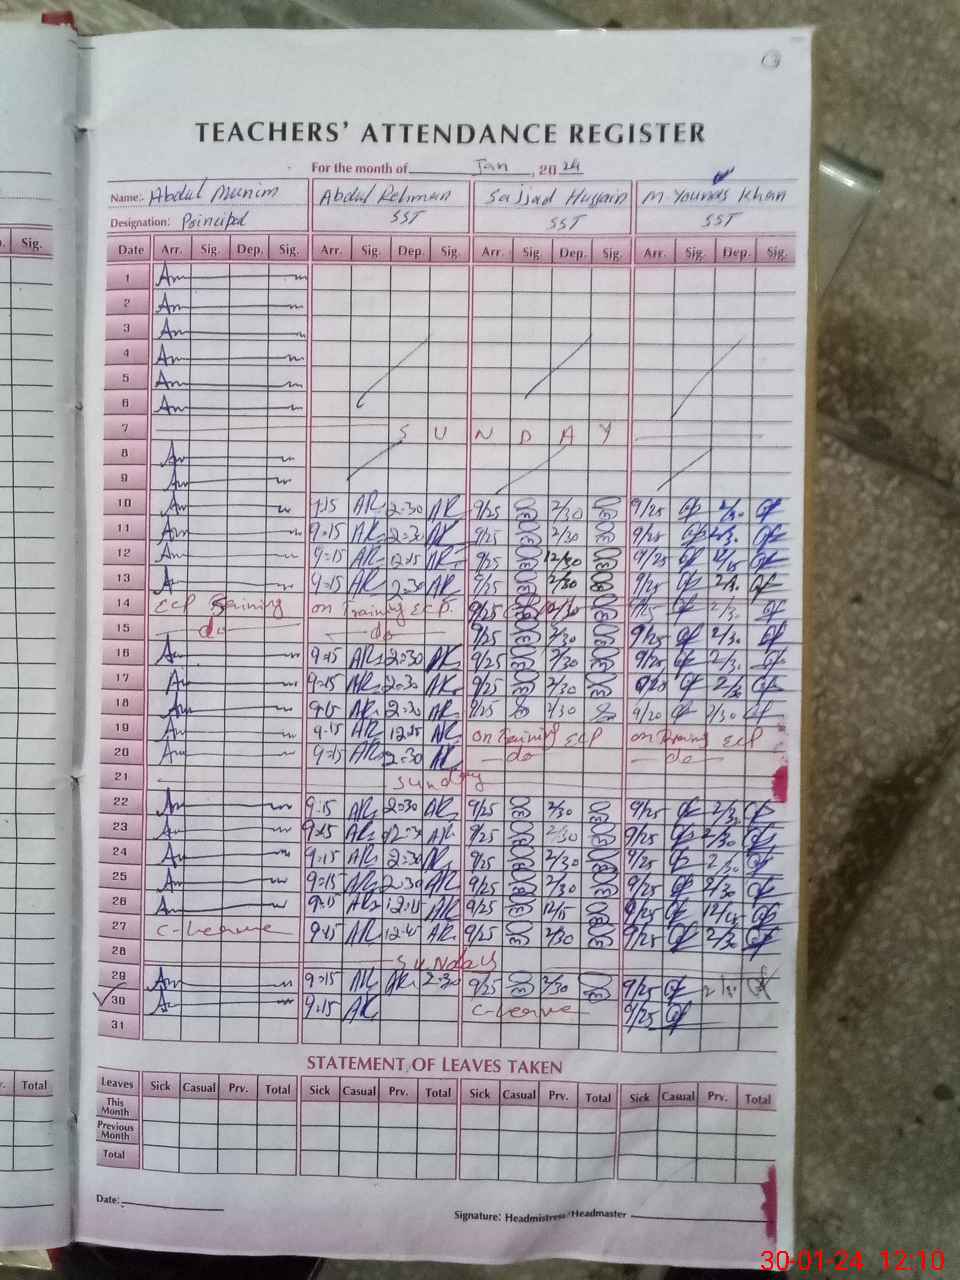 TEACHERS' ATTENDANCE REGISTER
For the month of Jan, 2024
Name: Abdul Munim Abdul Rehman Sajjad Hussain M Younas Khan
Designation: Principal SST SST SST
p. Sig.
Date Arr. Sig. Dep. Sig. Arr. Sig. Dep. Sig. Arr. Sig. Dep. Sig. Arr. Sig. Dep. Sig.
1
2
3
4
5
6
7 S U N D A Y
8
9
10 9:15 AR 2:30 AR 9/25 2/30 9/25 2/30
11 9:15 AR 2:30 AR 9/25 2/30 9/25 2/30
12 9:15 AR 12:15 AR 9/25 12/30 9/25 12/15
13 9:15 AR 2:30 AR 9/25 2/30 9/25 2/30
14 ECP Training on Training ECP. 9/25 2/30
15 do do 9/25 2/30 9/25 2/30
16 9:15 AR 2:30 AR 9/25 2/30 9/25 2/30
17 9:15 AR 2:30 AR 9/25 2/30 9/25 2/30
18 9:15 AR 2:30 AR 9/25 2/30 9/20 2/30
19 9:15 AR 12:15 AR on Training ECP on Training ECP
20 9:15 AR 2:30 AR do do
21 Sunday
22 9:15 AR 2:30 AR 9/25 2/30 9/25 2/30
23 9:15 AR 2:30 AR 9/25 2/30 9/25 2/30
24 9:15 AR 2:30 AR 9/25 2/30 9/25 2/30
25 9:15 AR 2:30 AR 9/25 2/30 9/25 2/30
26 9:15 AR 12:15 AR 9/25 12/15 9/25 12/15
27 C-Leave 9:15 AR 12:45 AR 9/25 2/30 9/25 2/30
28 SUNDAY
29 9:15 AR AR 2:30 9/25 2/30 9/25 2/30
30 9:15 AR C-Leave 9/25
31
STATEMENT OF LEAVES TAKEN
v. Total
Leaves Sick Casual Prv. Total Sick Casual Prv. Total Sick Casual Prv. Total Sick Casual Prv. Total
This Month
Previous Month
Total
Date:
Signature: Headmistress/Headmaster
30-01-24 12:10